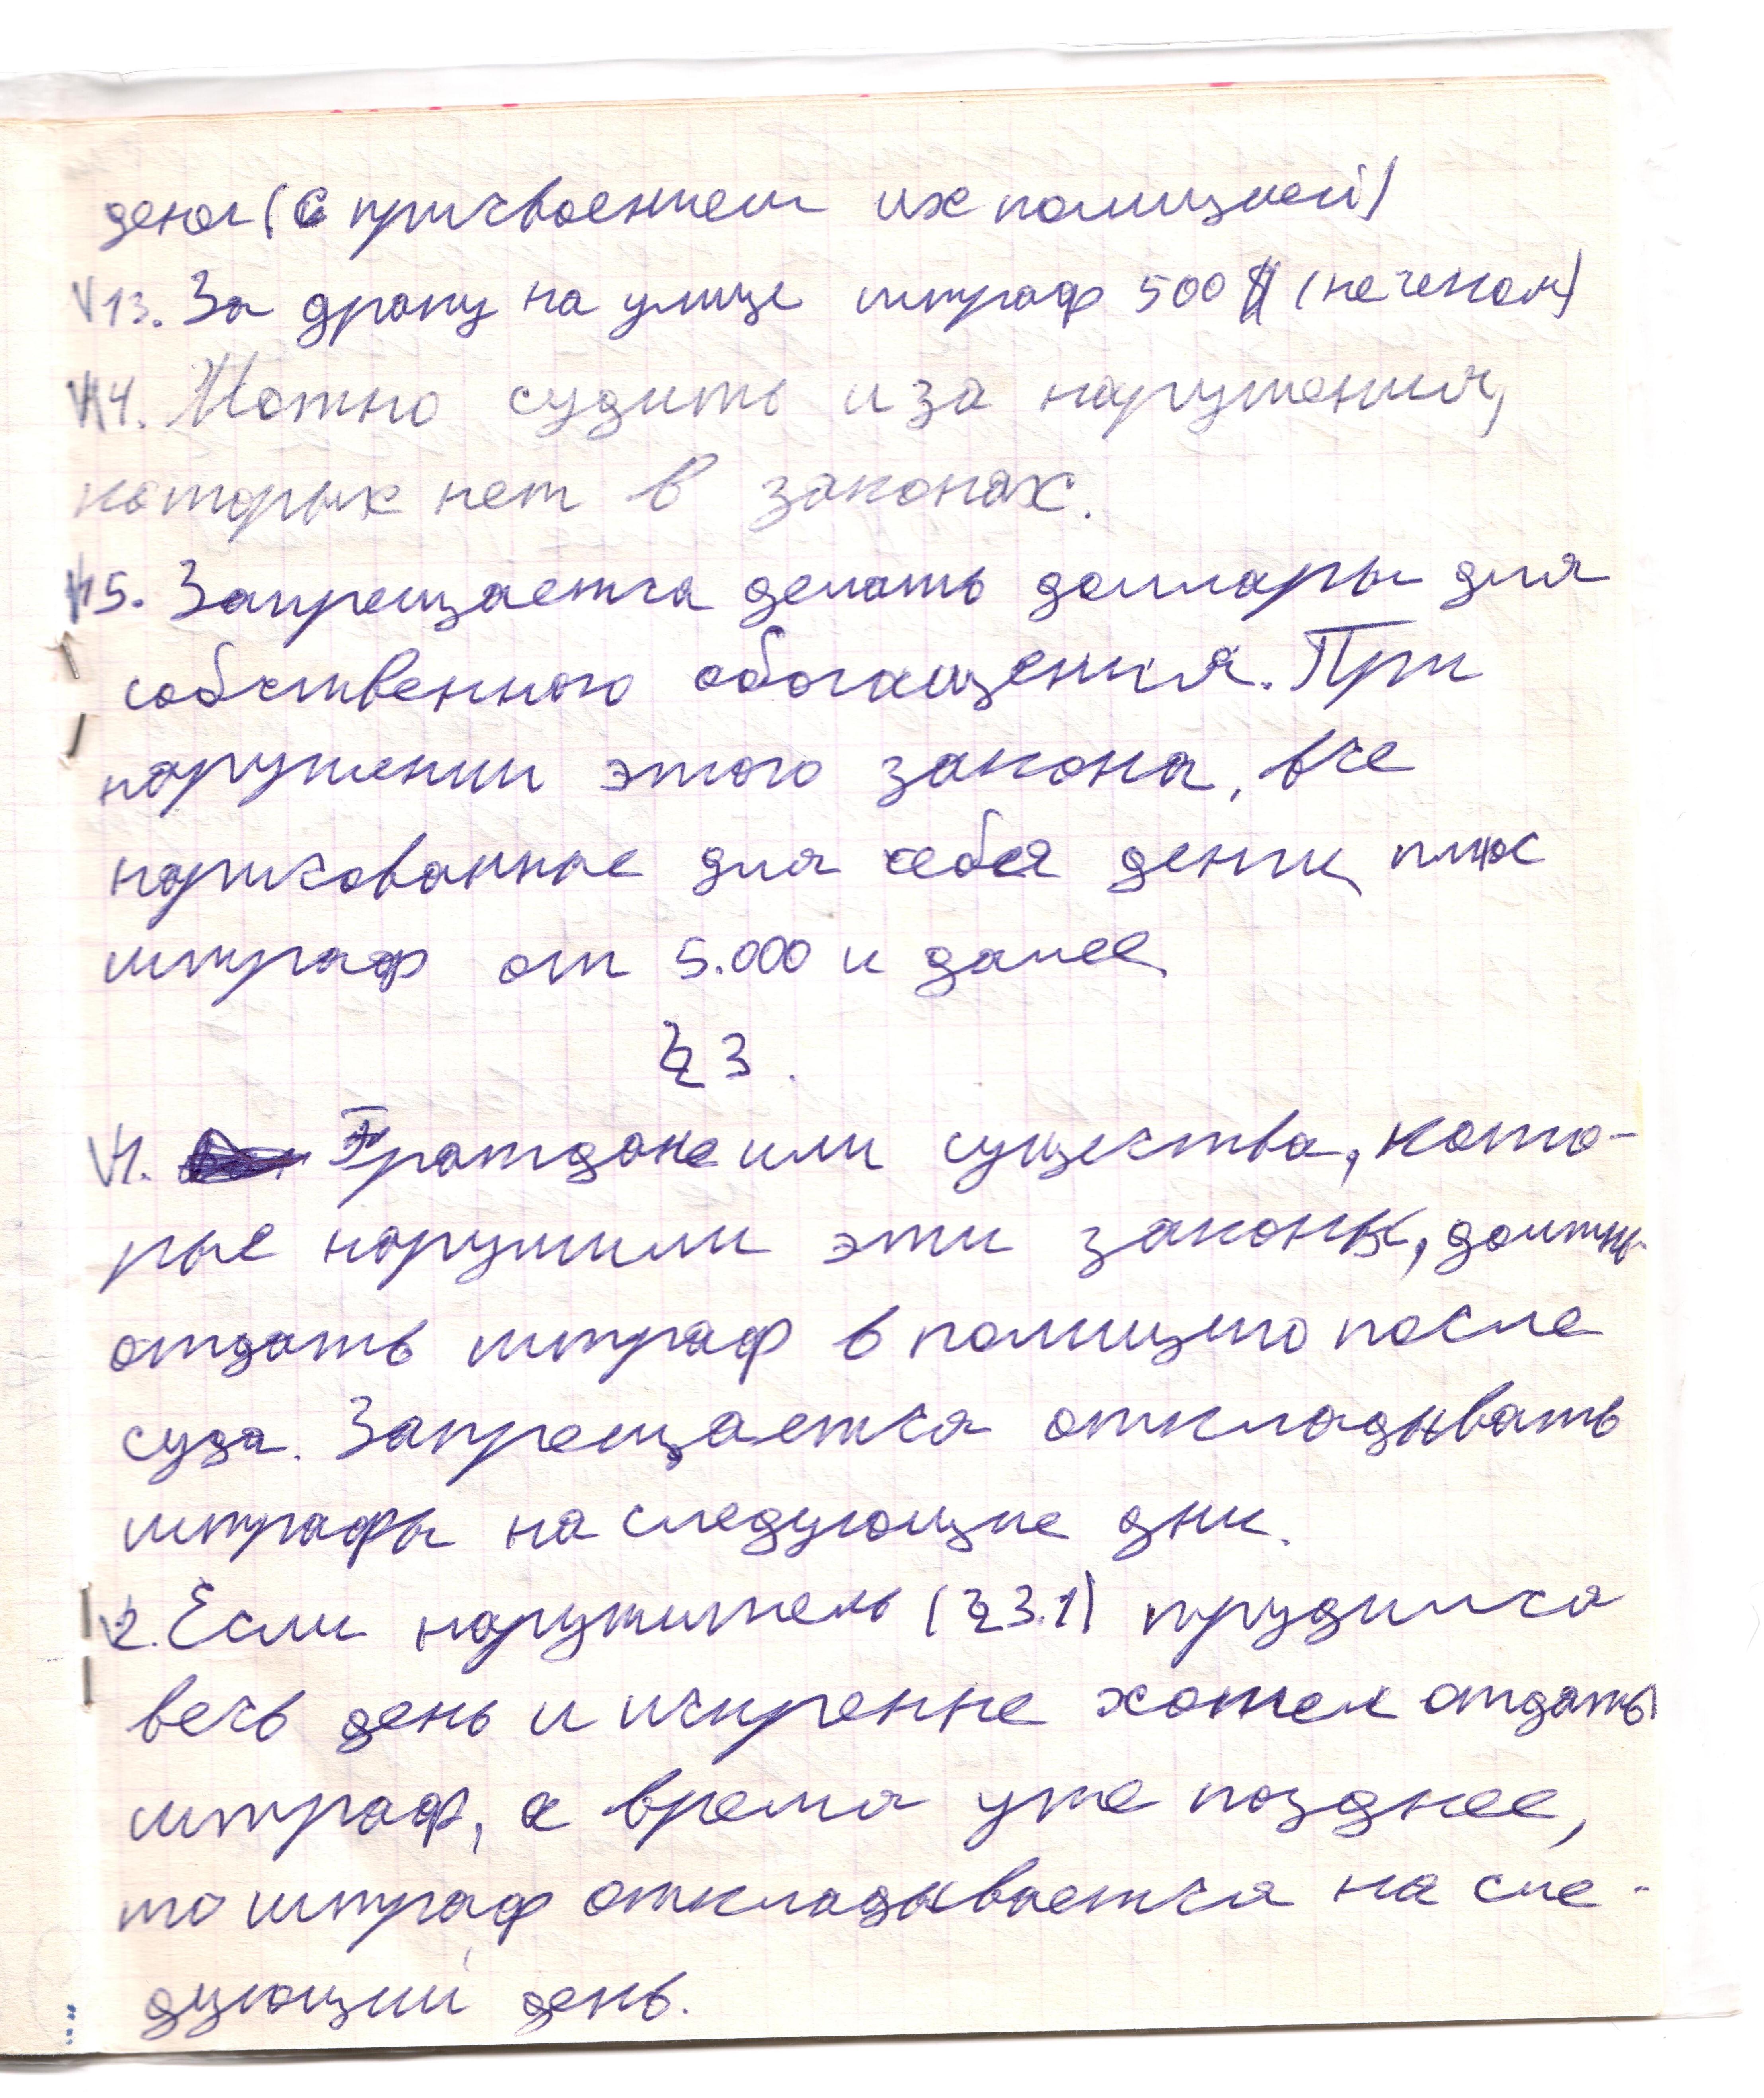 денег (с присвоением их полицией)
V 13. За драку на улице штраф 500 $ (не чеком)
V 14. Можно судить и за нарушения,
которых нет в законах.
V 15. Запрещается делать доллары для
собственного обогащения. При
нарушении этого закона, все
нарисованные для себя деньги, плюс
штраф от 5.000 и далее.
§ 3.
V 1. Граждане или существа, кото-
рые нарушили эти законы, должны
отдать штраф в полицию после
суда. Запрещается откладывать
штрафы на следующие дни.
V 2. Если нарушитель (§ 3.1) трудился
весь день и искренне хотел отдать
штраф, а время уже позднее,
то штраф откладывается на сле-
дующий день.